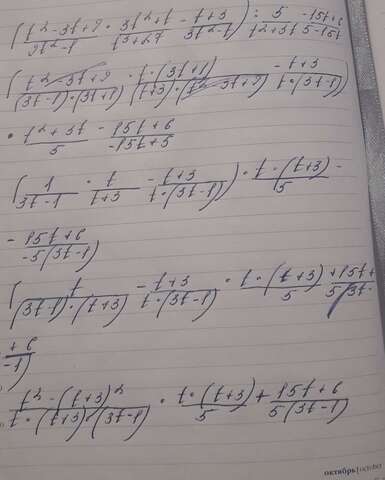 (t²-3t+9/9t²-1 · 3t²+t/t³+27 - t+3/3t²-t) : 5/t²+3t - 15t+6/5-15t
(t²-3t+9/(3t-1)·(3t+1) · t·(3t+1)/(t+3)·(t²-3t+9) - t+3/t·(3t-1))
· t²+3t/5 - 15t+6/-15t+5
(1/3t-1 · t/t+3 - t+3/t·(3t-1)) · t·(t+3)/5 -
- 15t+6/-5(3t-1)
(t/(3t-1)·(t+3) - t+3/t·(3t-1) · t·(t+3)/5 + 15t+/5(3t-
+6/-1)
t²-(t+3)²/t·(t+3)·(3t-1) · t·(t+3)/5 + 15t+6/5(3t-1)
октябрь | october